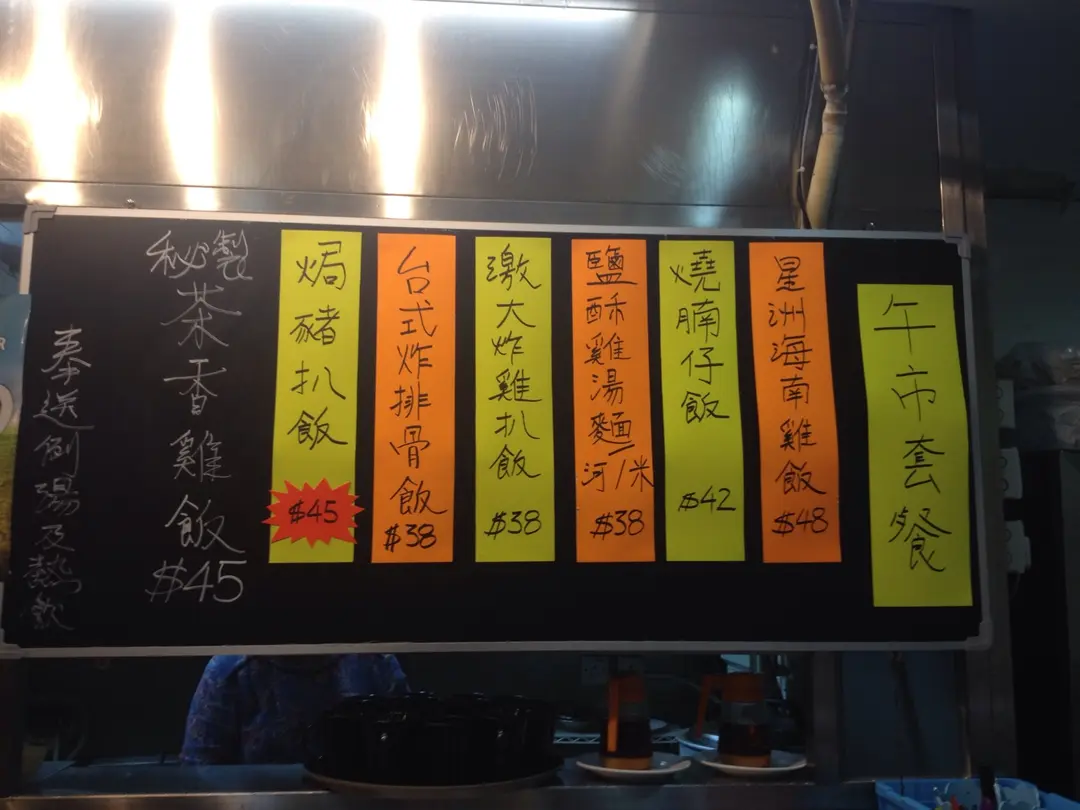 午市套餐
星洲海南雞飯
$48
燒腩仔飯
$42
鹽酥雞湯麵/
河/米
$38
激大炸雞扒飯
$38
台式炸排骨飯
$38
焗豬扒飯
$45
秘製茶香雞飯
$45
奉送例湯及熱飲